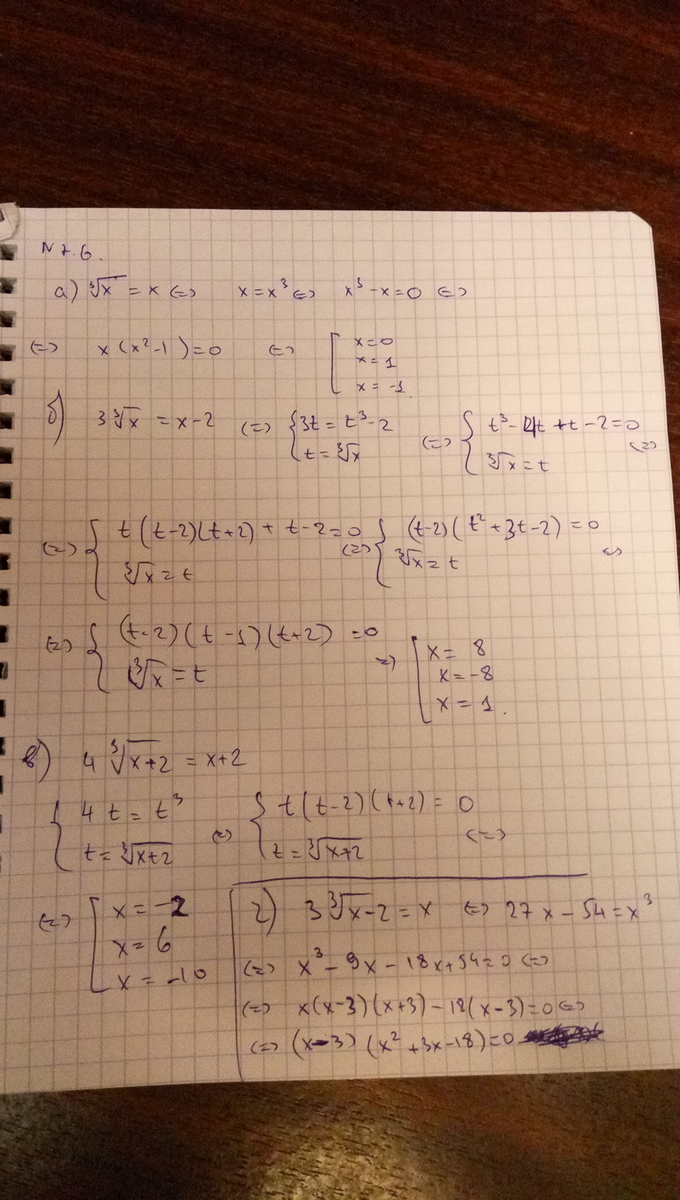 N 7.6.
а) ∛x = x ⇔ x = x³ ⇔ x³ - x = 0 ⇔
⇔ x (x² - 1) = 0 ⇔ [ x = 0
x = 1
x = -1.
б) 3∛x = x - 2 ⇔ { 3t = t³ - 2
t = ∛x
⇔ { t³ - 4t + t - 2 = 0
∛x = t ⇔
⇔ { t (t-2)(t+2) + t - 2 = 0
∛x = t
⇔ { (t-2)(t² + 3t - 2) = 0
∛x = t ⇔
⇔ { (t-2)(t-1)(t+2) = 0
∛x = t
⇒ [ x = 8
x = -8
x = 1.
в) 4 ∛(x+2) = x+2
{ 4t = t³
t = ∛(x+2)
⇔ { t (t-2)(t+2) = 0
t = ∛(x+2) ⇔
⇔ [ x = -2
x = 6
x = -10
г) 3∛x - 2 = x ⇔ 27x - 54 = x³
⇔ x³ - 9x - 18x + 54 = 0 ⇔
⇔ x(x-3)(x+3) - 18(x-3) = 0 ⇔
⇔ (x-3)(x² + 3x - 18) = 0